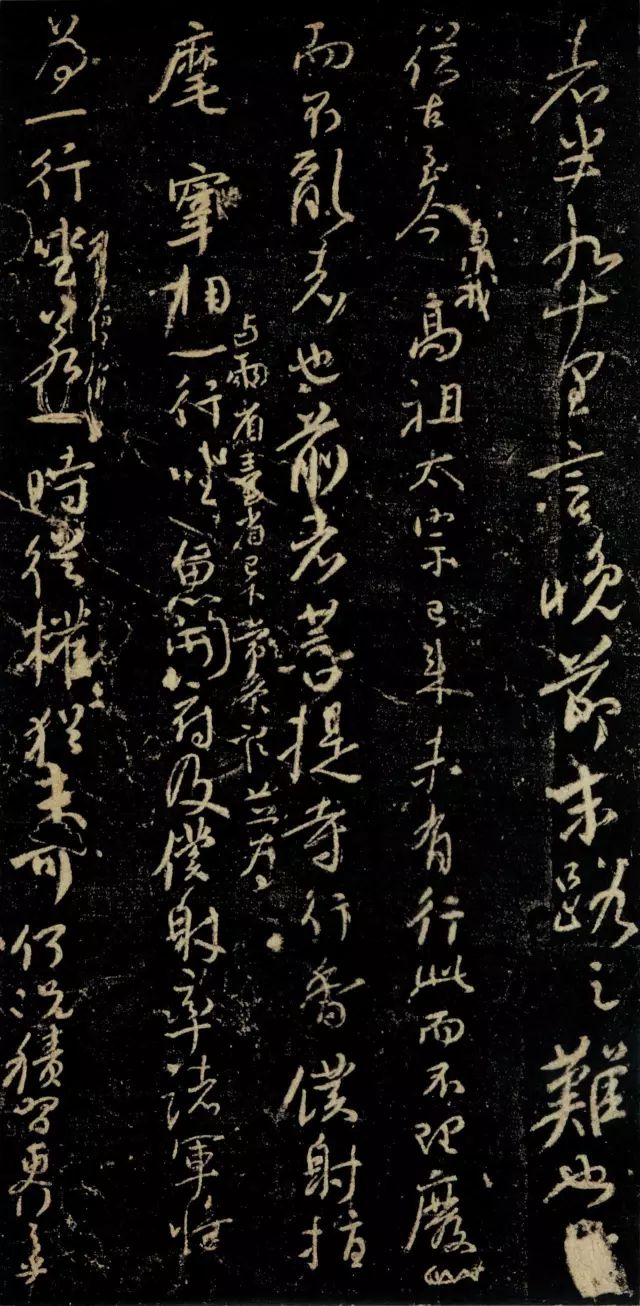 者半九十里言晚節末路之難也
從古至今
洎我
高祖太宗已來未有行此而不理廢
而不亂者也前者菩提寺行香僕射指
麾宰相
與兩省臺省已下常參官並為
一行坐魚開府及僕射率諸軍將
為一行坐若一時從權猶未可何況積習更行